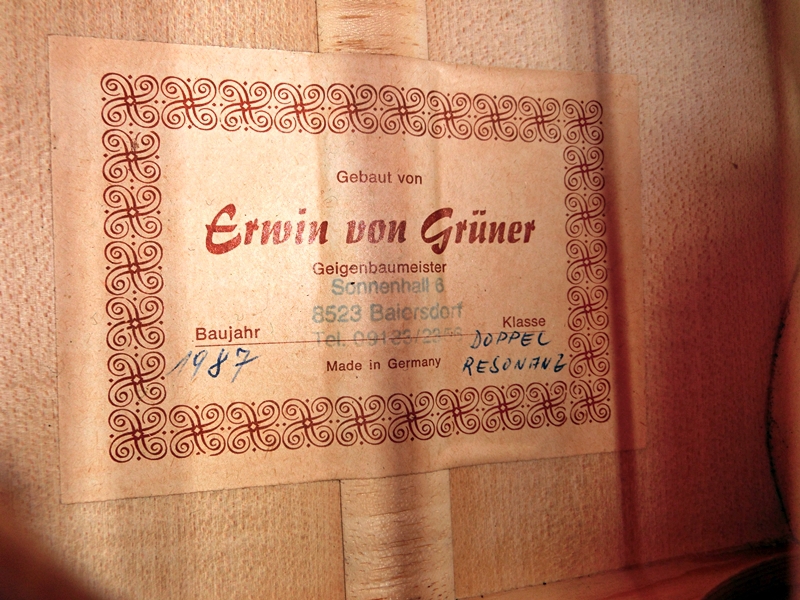 Gebaut von
Erwin von Grüner
Geigenbaumeister
Sonnenhall 6
8523 Baiersdorf
Tel.
Baujahr
Klasse
1987
DOPPEL
RESONANZ
Made in Germany